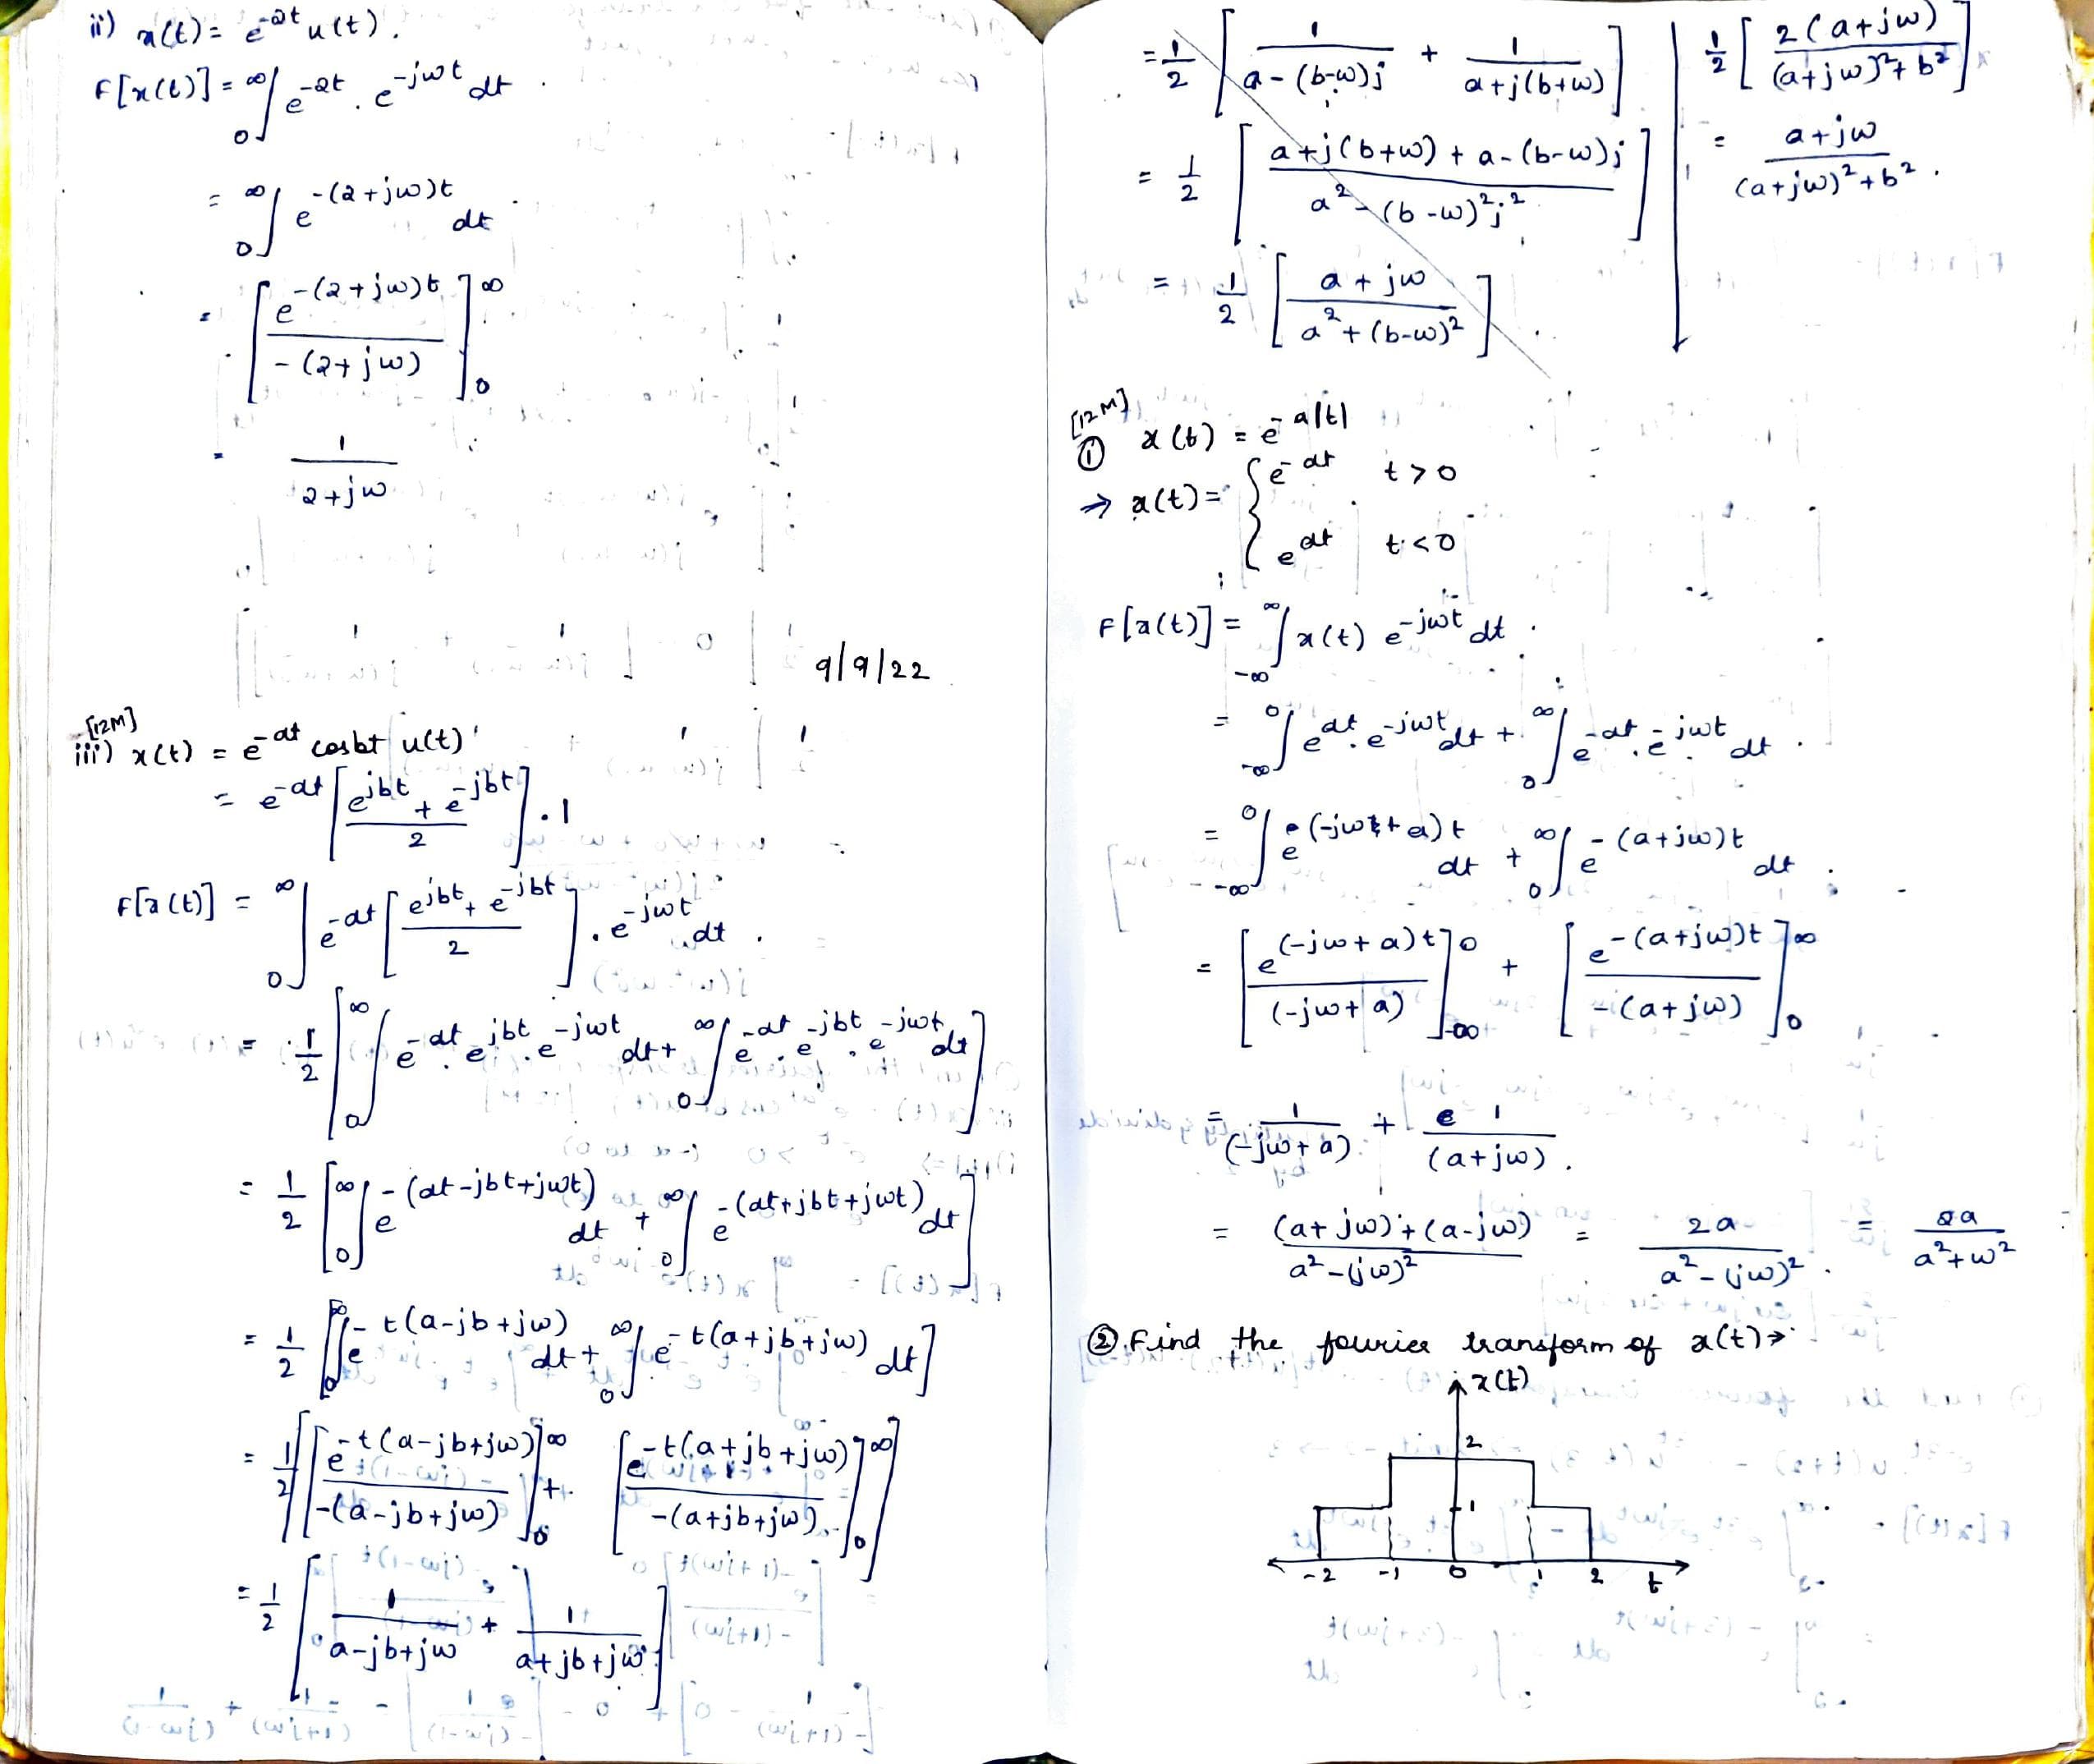 ii) x(t) = e^-2t u(t).
F[x(t)] = ∞∫0 e^-2t . e^-jωt dt.
= ∞∫0 e^-(2+jω)t dt.
= [e^-(2+jω)t / -(2+jω)]∞0
= 1 / 2+jω
9/9/22
[12M]
iii) x(t) = e^-at cosbt u(t)
= e^-at [e^jbt + e^-jbt / 2] . 1
F[x(t)] = ∞∫0 e^-at [e^jbt + e^-jbt / 2] . e^-jωt dt.
= 1/2 [∞∫0 e^-at . e^jbt . e^-jωt dt + ∞∫0 e^-at . e^-jbt . e^-jωt dt]
= 1/2 [∞∫0 e^-(at-jbt+jωt) dt + ∞∫0 e^-(at+jbt+jωt) dt]
= 1/2 [∞∫0 e^-t(a-jb+jω) dt + ∞∫0 e^-t(a+jb+jω) dt]
= 1/2 [[e^-t(a-jb+jω) / -(a-jb+jω)]∞0 + [e^-t(a+jb+jω) / -(a+jb+jω)]∞0]
= 1/2 [1 / a-jb+jω + 1 / a+jb+jω]
= 1/2 [1 / a-(b-ω)j + 1 / a+j(b+ω)]
= 1/2 [a+j(b+ω) + a-(b-ω)j / a²-(b-ω)²j²]
= 1/2 [a+jω / a²+(b-ω)²]
1/2 [2(a+jω) / (a+jω)²+b²]
= a+jω / (a+jω)²+b².
[12M]
① x(t) = e^-a|t|
⇒ x(t) = { e^-at t>0
e^at t<0
F[x(t)] = ∞∫-∞ x(t) e^-jωt dt.
= 0∫-∞ e^at . e^-jωt dt + ∞∫0 e^-at . e^-jωt dt.
= 0∫-∞ e^(-jω+a)t dt + ∞∫0 e^-(a+jω)t dt
= [e^(-jω+a)t / (-jω+a)]0-∞ + [e^-(a+jω)t / -(a+jω)]∞0
= 1 / (-jω+a) + 1 / (a+jω).
= (a+jω)+(a-jω) / a²-(jω)² = 2a / a²-(jω)². = 2a / a²+ω²
② Find the fourier transform of x(t)→
x(t)
2
1
-2 -1 0 1 2 t